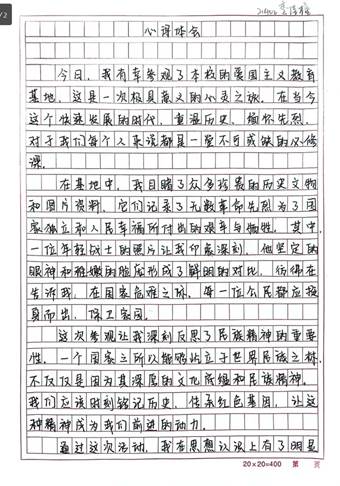 /2
心得体会
今日，我有幸参观了本校的爱国主义教育
基地，这是一次极具意义的心灵之旅。在当今
这个快速发展的时代，重温历史、缅怀先烈，
对于我们每个人来说都是一堂不可或缺的必修
课。
在基地中，我目睹了众多珍贵的历史文物
和图片资料，它们记录了无数革命先烈为了国
家独立和人民幸福所付出的艰辛与牺牲。其中，
一位年轻战士的照片让我印象深刻，他坚定的
眼神和稚嫩的脸庞形成了鲜明的对比，仿佛在
告诉我，在国家危难之际，每一位公民都应挺
身而出，保卫家园。
这次参观让我深刻反思了民族精神的重要
性。一个国家之所以能够屹立于世界民族之林，
不仅仅是因为其深厚的文化底蕴和民族精神。
我们应该时刻铭记历史，传承红色基因，让这
种精神成为我们前进的动力。
通过这次活动，我在思想认识上有了明显
20×20=400 第 页